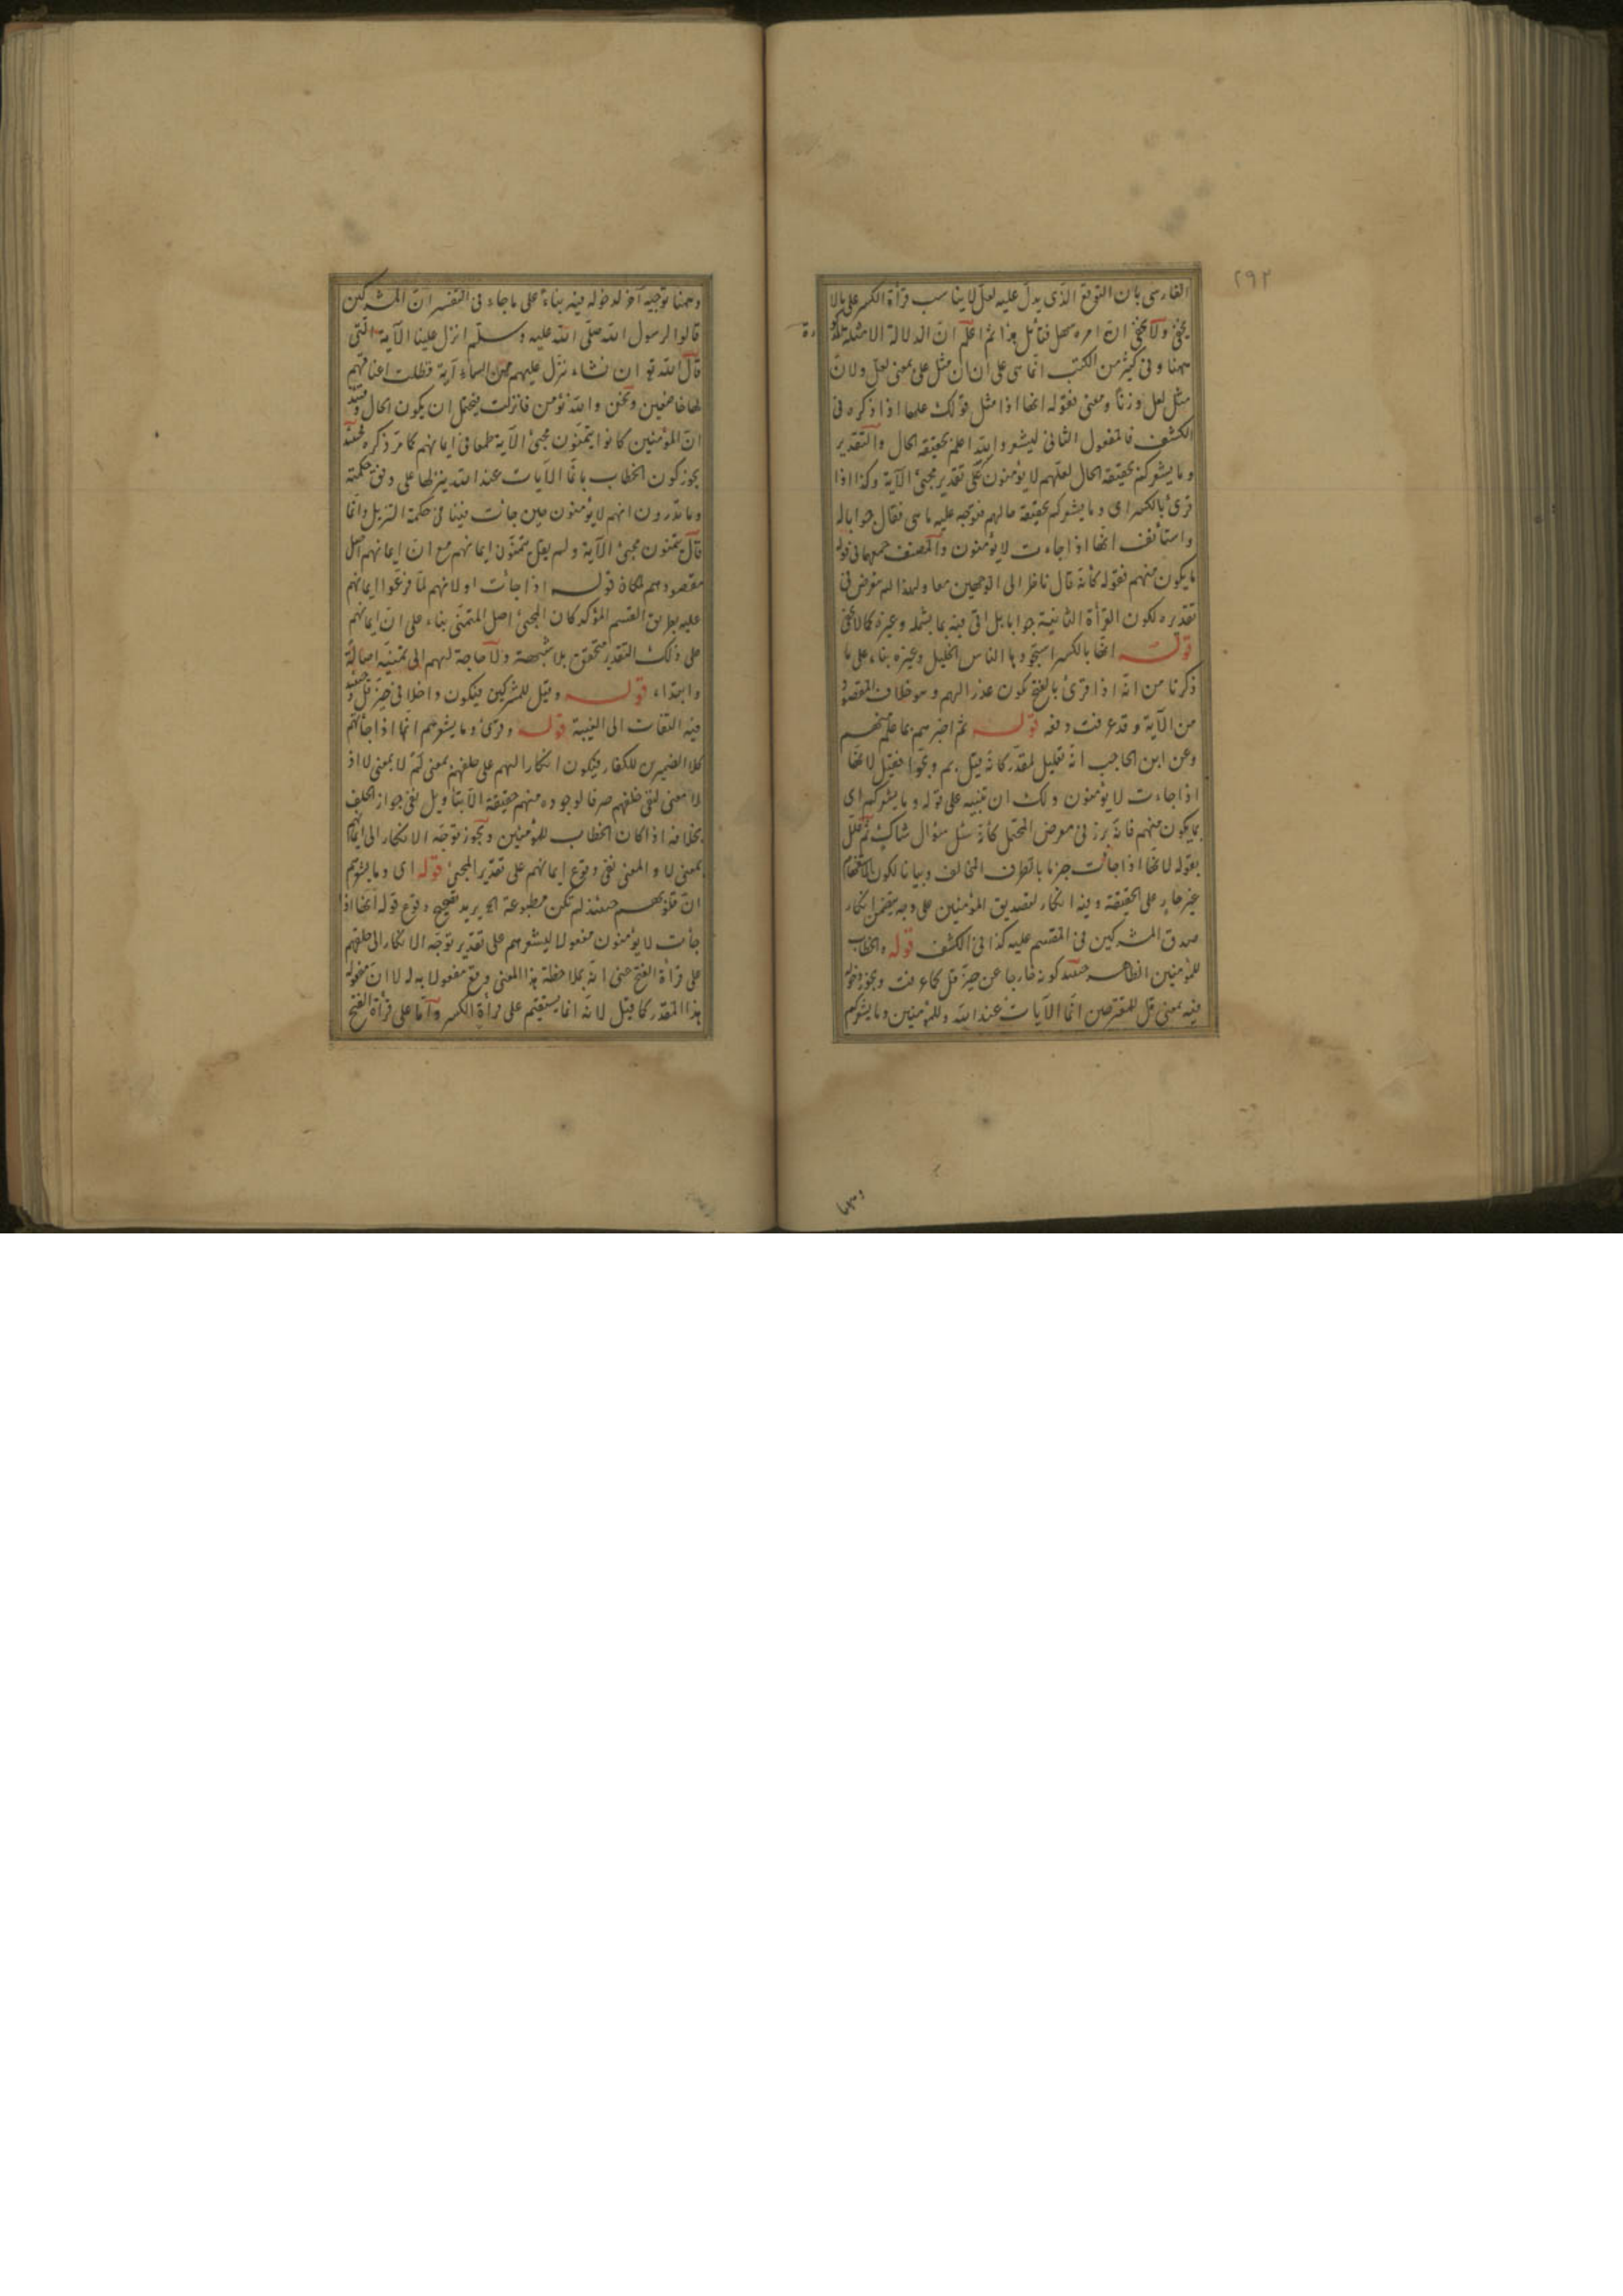 ٢٩٢
الفارسى بان التوقع الذى يدل عليه لعل لا يناسب قرأة الكسر على ما لا
يخفى ولا يخفى ان امره سهل فتأمل هذا ثم اعلم ان الدلالة الامثلة
ههنا وفى كثير من الكتب انما هى على ان ان مثل على بمعنى لعل ولا ان
مثل لعل وزنا ومعنى فقوله انها اذا مثل قولك علها اذا ذكره فى
الكشف فالمفعول الثانى ليشعر والله اعلم بحقيقة الحال والتقدير
وما يشعركم بحقيقة الحال لعلهم لا يؤمنون على تقدير مجئ الآية وكذا اذا
قرئ بالكسر اى وما يشعركم بحقيقة حالهم فتوجه عليه ما هى فقال جوابا له
واستأنف انها اذا جاءت لا يؤمنون والمصنف جمعهما فى قوله
ما يكون منهم فقوله كأنه قال ناظر الى الوجهين معا ولهذا لم يتعرض فى
تقديره لكون القرأة الثانية جوابا بل اتى فيه بما يشمله وغيره كما لا يخفى
قوله انها بالكسر استجودها الناس الخليل وغيره بناء على ما
ذكرنا من انه اذا قرئ بالفتح يكون عذرا لهم وهو خلاف المقصود
من الآية وقد عرفت دفعه قوله ثم اخبرهم بما علم منهم
وعن ابن الحاجب انه تعليل لمقدر كأنه قيل بم وبخوا فقيل لانها
اذا جاءت لا يؤمنون ولك ان تنبيه على قوله وما يشعركم اى
بما يكون منهم فانه برز فى معرض المحتمل كأنه سئل سؤال شاك ثم علل
بقوله لانها اذا جائت جزما بالطرف المخالف وبيانا لكون الاستفهام
غير جار على الحقيقة وفيه انكار لتصديق المؤمنين على وجه يتضمن انكار
صدق المشركين فى المقسم عليه كذا فى الكشف قوله والخطاب
للمؤمنين الظاهر حينئذ كونه خارجا عن حيز قل كما عرفت ويجوز دخوله
فيه بمعنى قل للمقترحين انما الآيات عند الله وللمؤمنين وما يشعركم
وههنا
وههنا توجيه آخر لدخوله فيه بناء على ما جاء فى التفسير ان المشركين
قالوا لرسول الله صلى الله عليه وسلم انزل علينا الآية التى
قال الله تع ان نشاء ننزل عليهم من السماء آية فظلت اعناقهم
لها خاضعين ونحن والله نؤمن فانزلت فيحتمل ان يكون الحال
ان المؤمنين كانوا يتمنون مجئ الآية طمعا فى ايمانهم كما مر ذكره فحينئذ
يجوز كون الخطاب بانما الآيات عند الله ينزلها على وفق حكمته
وما تدرون انهم لا يؤمنون حين جائت فينا فى حكمة التنزيل وانما
قال يتمنون مجئ الآية ولم يقل يتمنون ايمانهم مع ان ايمانهم اصل
مقصودهم لمكان قوله اذا جائت او لانهم لما فرغوا ايمانهم
عليه بطريق القسم المؤكد كان المجئ اصل المتمنى بناء على ان ايمانهم
على ذلك التقدير متحقق بلا شبهة ولا حاجة لهم الى تمنيه اصالة
وابتداء قوله وقيل للمشركين فيكون داخلا فى حيز قل
فيه التفات الى الغيبة قوله وقرئ وما يشعرهم انها اذا جائتهم
كلا الضميرين للكفار فيكون انكارا لهم على حلفهم بمعنى لم لا بمعنى لا اذ
لا معنى لنفى حلفهم صرفا لوجوده منهم حقيقة الا بتأويل نفى جواز الحلف
بخلافه اذا كان الخطاب للمؤمنين ويجوز توجه الانكار الى ايمانهم
بمعنى لا والمعنى نفى وقوع ايمانهم على تقدير المجئ قوله اى وما يشعرهم
ان قلوبهم حينئذ لم تكن مطبوعة الخ يريد تصحيح وقوع قوله انها اذا
جأت لا يؤمنون مفعولا ليشعرهم على تقدير توجه الانكار الى حلفهم
على قرأة الفتح حتى انه بملاحظة هذا المعنى وقع مفعولا به له لا ان مفعوله
هذا المقدر كما قيل لانه انما يستقيم على قرأة الكسر واما على قرأة الفتح